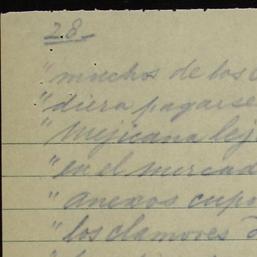 28
"muchos de los
"diera pagarse
"Mejicana leg
"en el mercad
"anexos cupo
"los clamores d